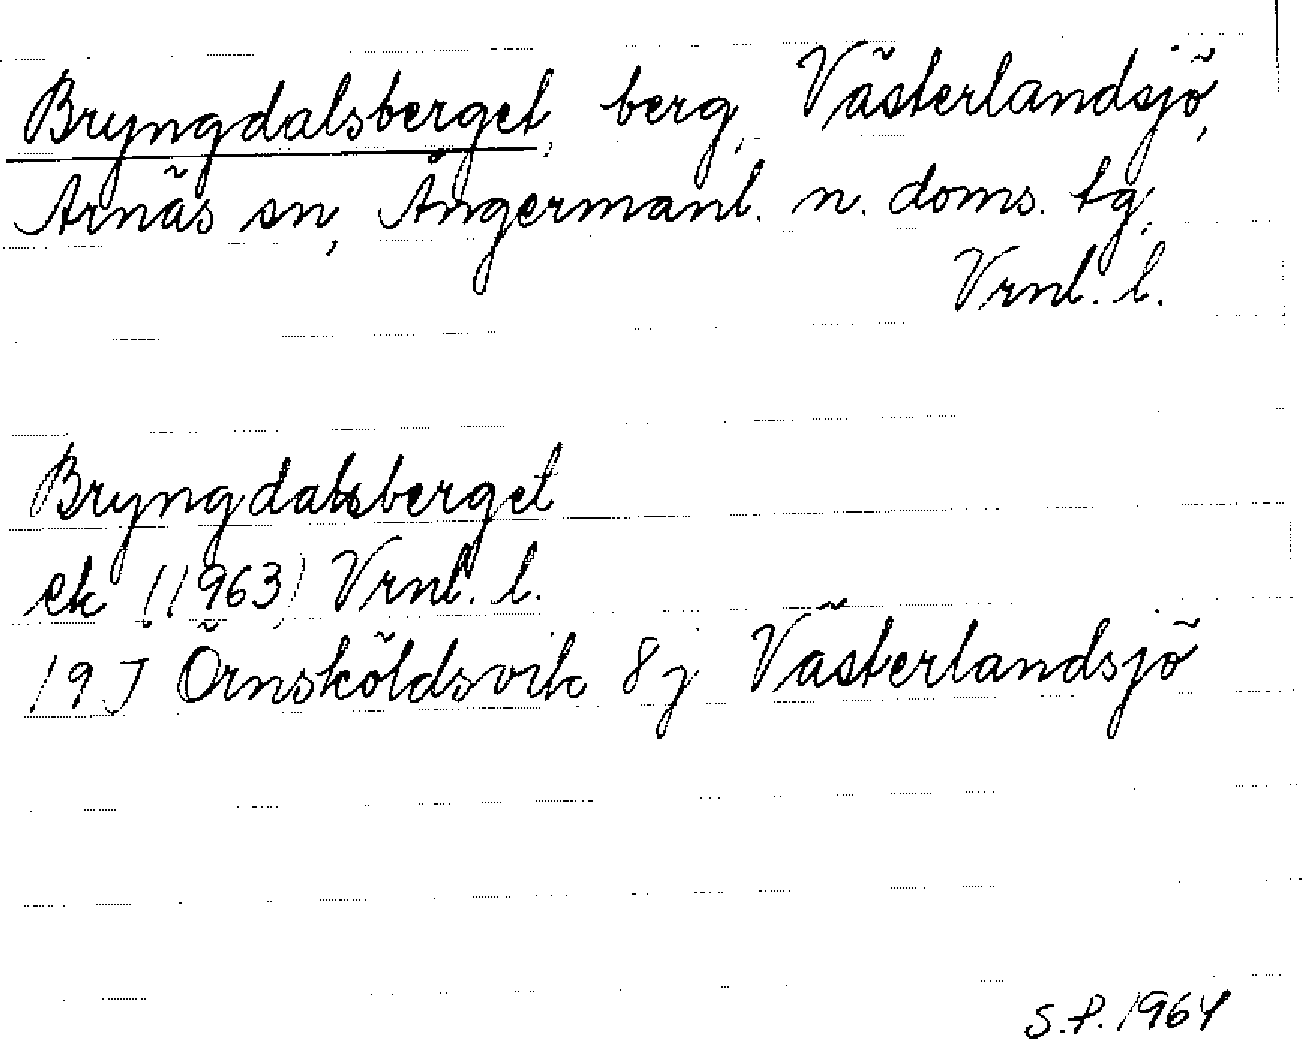 Bryngdalsberget, berg, Västerlandsjö,
Arnäs sn, Ångermanl. n. doms. tg,
Vrnl. l.
Bryngdalsberget
ek (1963) Vrnl. l.
19J Örnsköldsvik 8j Västerlandsjö
S.P. 1964